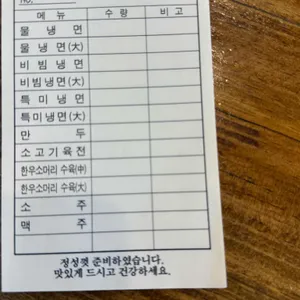 NO.
메 뉴 수 량 비 고
물 냉 면
물 냉 면 (大)
비 빔 냉 면
비빔냉면(大)
특 미 냉 면
특미냉면(大)
만 두
소 고 기 육 전
한우소머리 수육(中)
한우소머리 수육(大)
소 주
맥 주
정성껏 준비하였습니다.
맛있게 드시고 건강하세요.